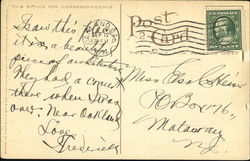 THIS SPACE FOR CORRESPONDENCE
POST
CARD
Saw this place
it is a beautiful
piece of architecture
They had a concert
there when I was
over. Near Oakland
Love
Frederick
Miss Elsa C.
PO Box 716
Matawan
N.J.